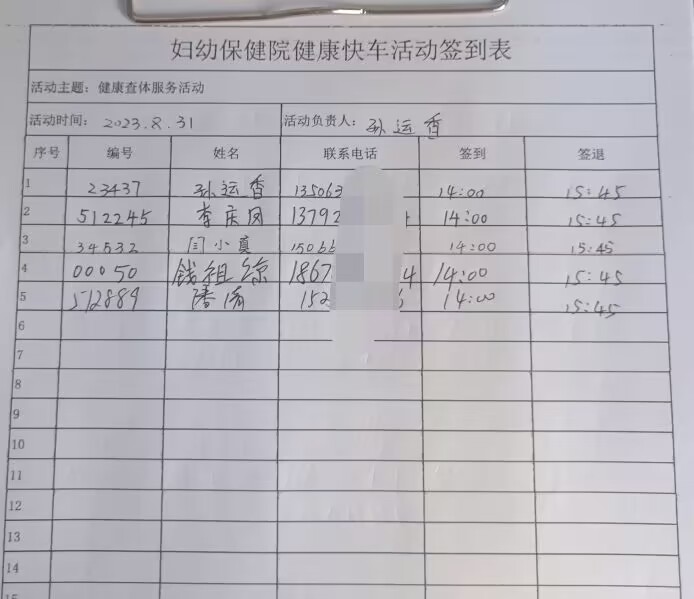 妇幼保健院健康快车活动签到表
活动主题：健康查体服务活动
活动时间： 2023.8.31 活动负责人： 孙运香
序号 编号 姓名 联系电话 签到 签退
1 23437 孙运香 135063 14:00 15:45
2 512245 李庆凤 13792 14:00 15:45
3 34532 闫小真 15066 14:00 15:45
4 00050 钱祖 1867 4 14:00 15:45
5 512889 潘 152 14:00 15:45
6
7
8
9
10
11
12
13
14
15